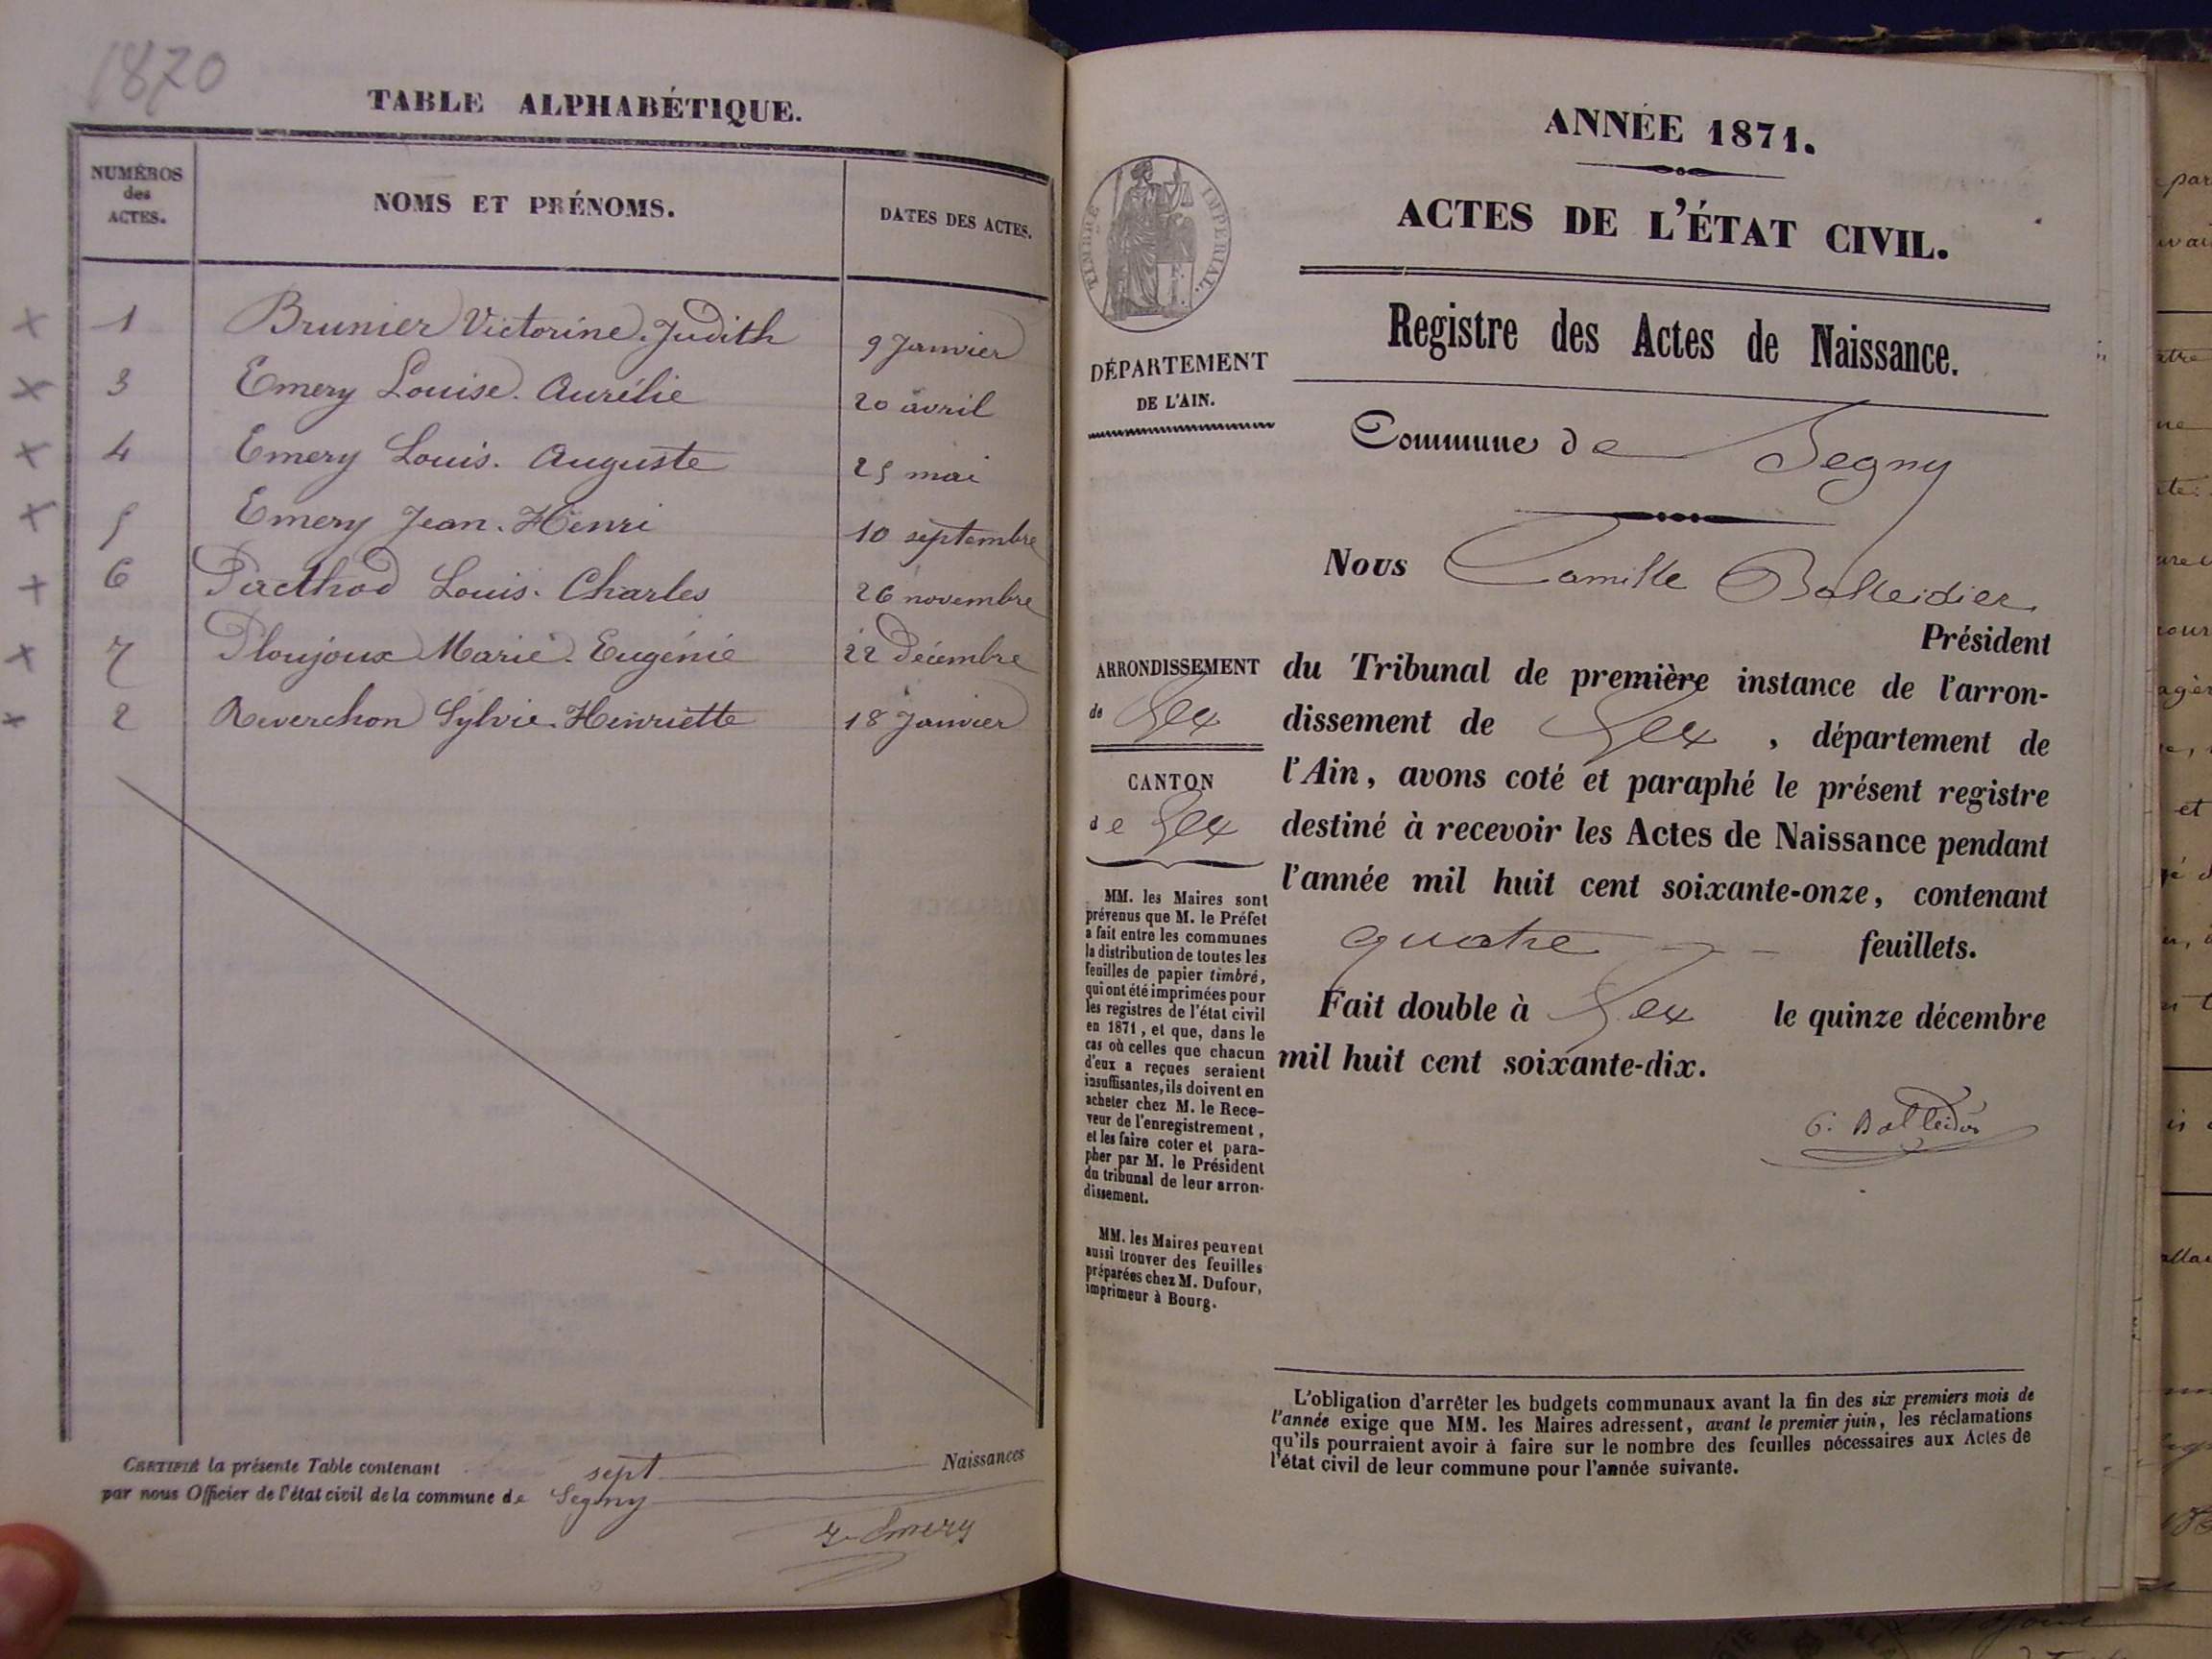 1870
TABLE ALPHABÉTIQUE.
NUMÉROS des ACTES. NOMS ET PRÉNOMS. DATES DES ACTES.
1 Brunier Victorine. Judith 9 Janvier
3 Emery Louise. Aurélie 20 avril
4 Emery Louis. Auguste 25 mai
5 Emery Jean. Henri 10 septembre
6 Pacthod Louis. Charles 26 novembre
7 Ploujoux Marie. Eugénie 22 Décembre
2 Reverchon Sylvie. Henriette 18 Janvier
CERTIFIÉ la présente Table contenant sept Naissances
par nous Officier de l'état civil de la commune de Segny
Emery
ANNÉE 1871.
ACTES DE L'ÉTAT CIVIL.
TIMBRE IMPÉRIAL.
Registre des Actes de Naissance.
DÉPARTEMENT
DE L'AIN.
Commune de Segny
Nous Camille Balleidier
Président
ARRONDISSEMENT
de Gex
CANTON
de Gex
du Tribunal de première instance de l'arron-
dissement de Gex, département de
l'Ain, avons coté et paraphé le présent registre
destiné à recevoir les Actes de Naissance pendant
l'année mil huit cent soixante-onze, contenant
quatre feuillets.
Fait double à Gex le quinze décembre
mil huit cent soixante-dix.
C. Balleidier
MM. les Maires sont
prévenus que M. le Préfet
a fait entre les communes
la distribution de toutes les
feuilles de papier timbré,
qui ont été imprimées pour
les registres de l'état civil
en 1871, et que, dans le
cas où celles que chacun
d'eux a reçues seraient
insuffisantes, ils doivent en
acheter chez M. le Rece-
veur de l'enregistrement,
et les faire coter et para-
pher par M. le Président
du tribunal de leur arron-
dissement.
MM. les Maires peuvent
aussi trouver des feuilles
préparées chez M. Dufour,
imprimeur à Bourg.
L'obligation d'arrêter les budgets communaux avant la fin des six premiers mois de
l'année exige que MM. les Maires adressent, avant le premier juin, les réclamations
qu'ils pourraient avoir à faire sur le nombre des feuilles nécessaires aux Actes de
l'état civil de leur commune pour l'année suivante.